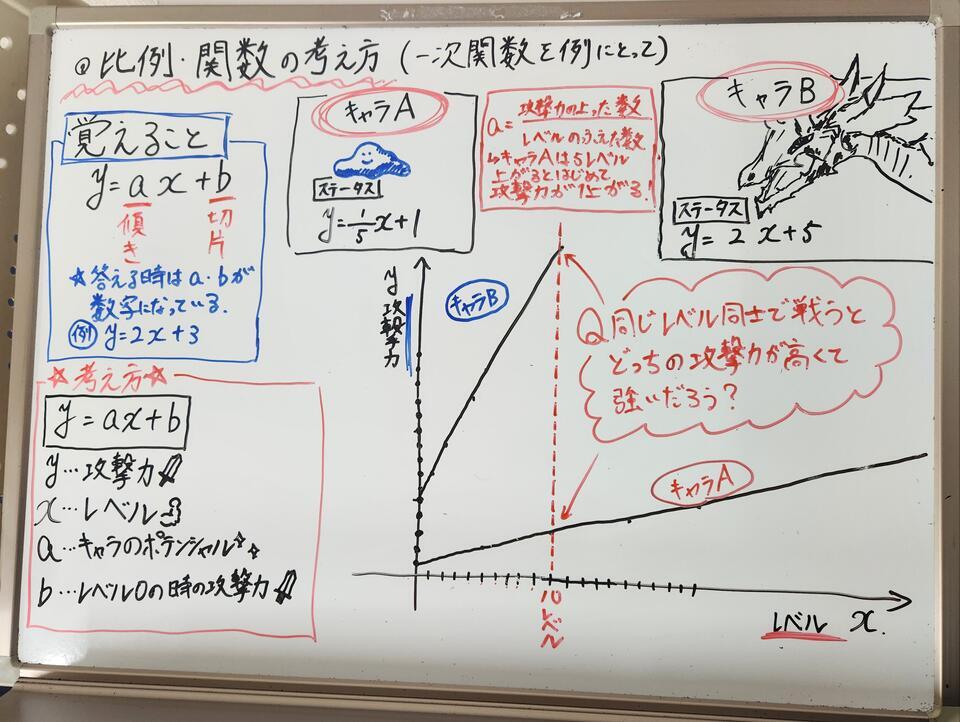 ◎比例・関数の考え方(一次関数を例にとって)
覚えること
y=ax+b
傾き
切片
☆答える時はa・bが
数字になっている.
例 y=2x+3
☆考え方☆
y=ax+b
y…攻撃力
x…レベル
a…キャラのポテンシャル
b…レベル0の時の攻撃力
キャラA
ステータス
y=1/5x+1
a=攻撃力の上った数/レベルのふえた数
↳キャラAは5レベル
上がるとはじめて
攻撃力が1上がる!
キャラB
ステータス
y=2x+5
y
攻撃力
キャラB
Q 同じレベル同士で戦うと
どっちの攻撃力が高くて
強いだろう?
キャラA
10レベル
レベル x.